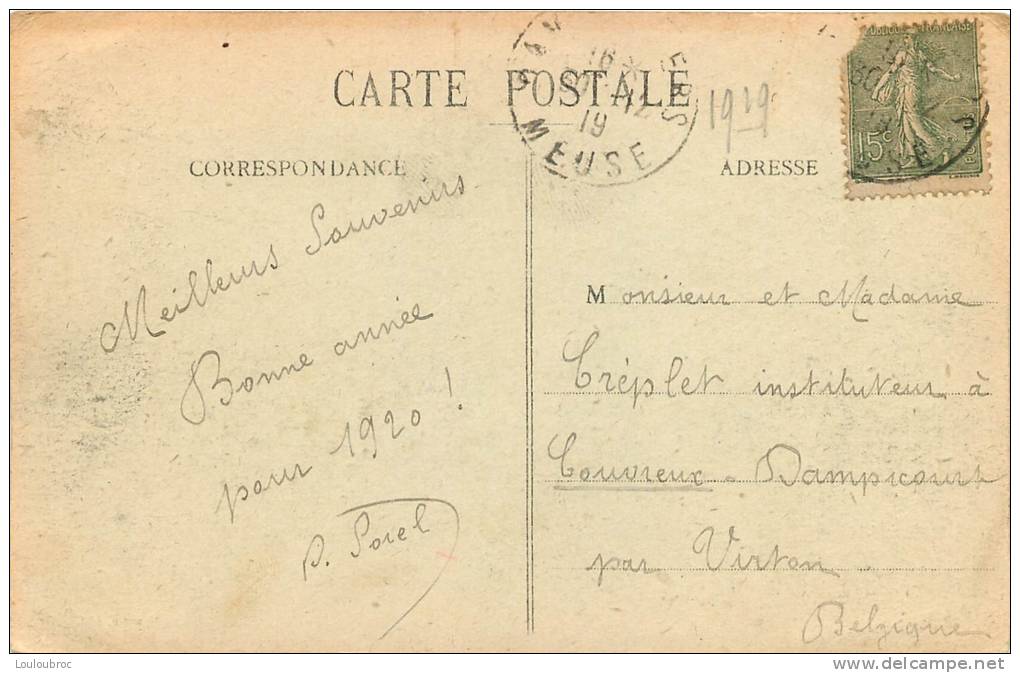 CARTE POSTALE
16
12
19
MEUSE
1919
REPUBLIQUE FRANÇAISE
15c
CORRESPONDANCE
ADRESSE
Meilleurs Souvenirs
Bonne année
pour 1920 !
Monsieur et Madame
Tréplet instituteur à
Couvreux - Dampicourt
par Virton
Belgique
Louloubroc
www.delcampe.net